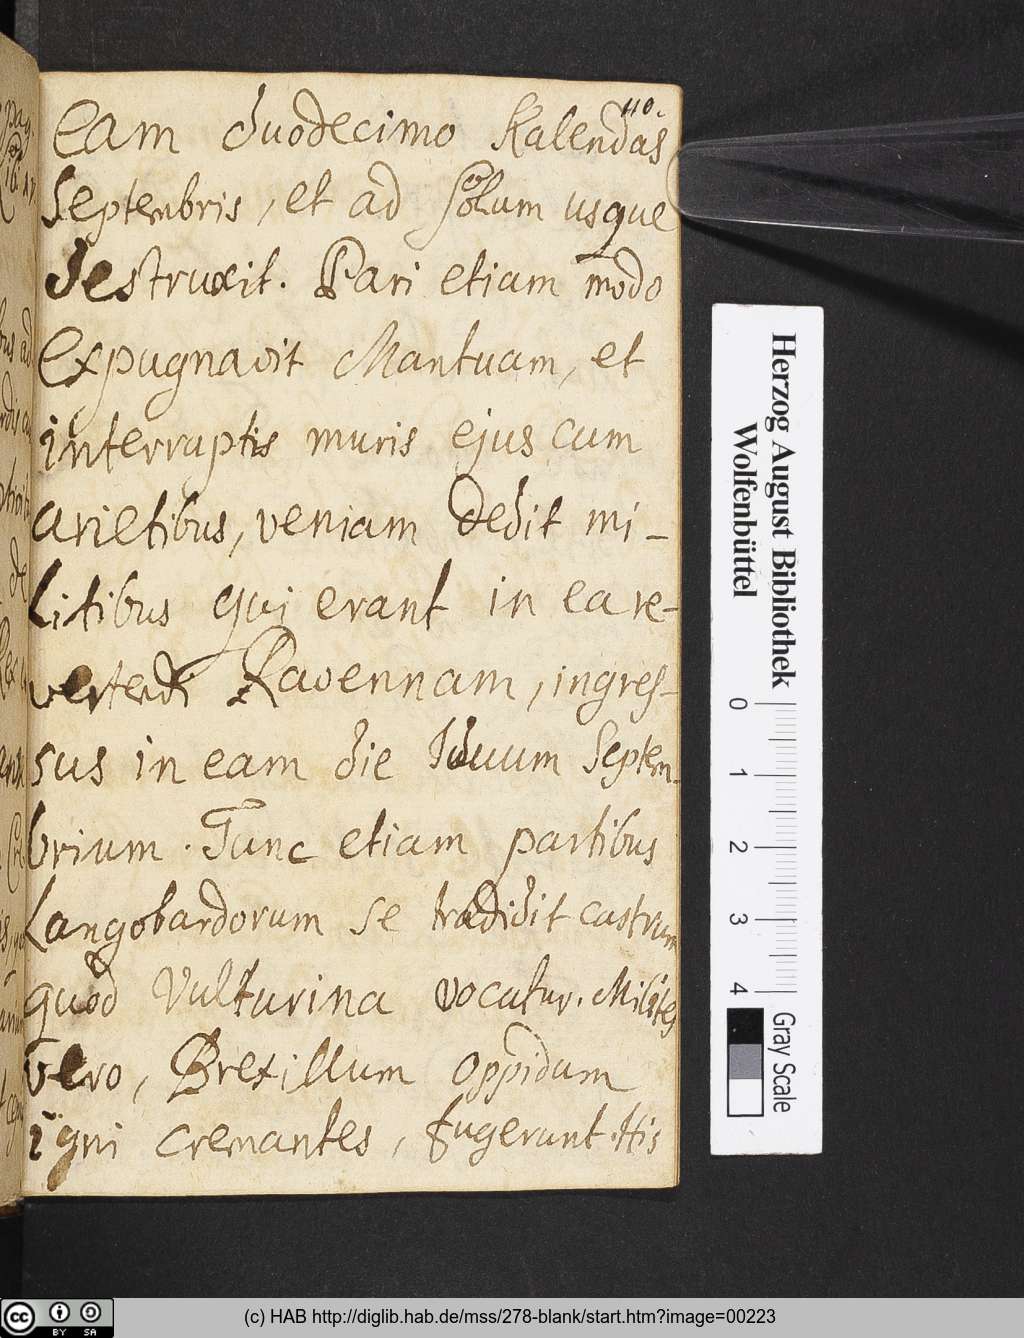 110.
Eam duodecimo Kalendas
Septembris, et ad solum usque
destruxit. Pari etiam modo
Expugnavit Mantuam, et
interruptis muris ejus cum
arietibus, veniam dedit mi-
litibus qui erant in ea re-
vertendi Ravennam, ingres-
sus in eam die Iduum Septem-
brium. Tunc etiam partibus
Langobardorum se tradidit castrum
quod Vulturina vocatur. Milites
vero, Brexillum oppidum
igni cremantes, fugerunt. His
Herzog August Bibliothek
Wolfenbüttel
0 1 2 3 4
Gray Scale
cc BY SA
(c) HAB http://diglib.hab.de/mss/278-blank/start.htm?image=00223